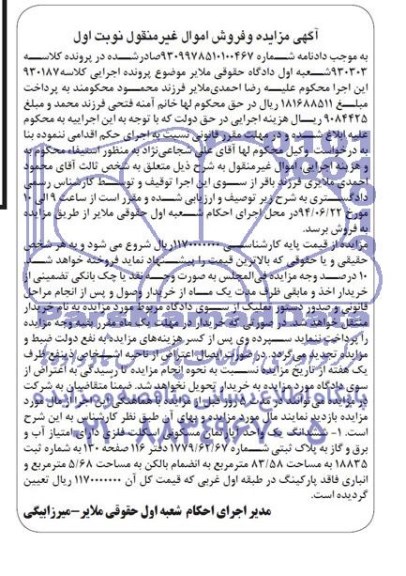 آگهی مزایده وفروش اموال غیرمنقول نوبت اول
به موجب دادنامه شماره ۹۳۰۹۹۷۸۵۱۰۱۰۰۴۶۷صادرشده در پرونده کلاسه
۹۳۰۳۰۳شعبه اول دادگاه حقوقی ملایر موضوع پرونده اجرایی کلاسه۹۳۰۱۸۷
این اجرا محکوم علیه رضا احمدی‌ملایر فرزند محمود محکومند به پرداخت
مبلغ ۱۸۱۶۸۸۵۱۱ ریال در حق محکوم لها خانم آمنه فتحی فرزند محمد و مبلغ
۹۰۸۴۴۲۵ ریال هزینه اجرایی در حق دولت که با توجه به این اجراییه به محکوم
علیه ابلاغ شده و در مهلت مقرر قانونی نسبت به اجرای حکم اقدامی ننموده بنا
به درخواست وکیل محکوم لها آقای علی شجاعی‌نژاد به منظور استیفاء محکوم به
و هزینه اجرایی، اموال غیرمنقول به شرح ذیل متعلق به شخص ثالث آقای محمود
احمدی ملایری فرزند باقر از سوی این اجرا توقیف و توسط کارشناس رسمی
دادگستری به شرح زیر توصیف و ارزیابی شده و مقرر است از ساعت ۹ الی ۱۰
مورخ ۹۴/۰۶/۲۲در محل اجرای احکام شعبه اول حقوقی ملایر از طریق مزایده
به فروش برسد.
مزایده از قیمت پایه کارشناسی ۱۱۷۰۰۰۰۰۰۰ریال شروع می شود و به هر شخص
حقیقی و یا حقوقی که بالاترین قیمت را پیشنهاد نماید فروخته خواهد شد
۱۰ درصد وجه مزایده فی‌المجلس به صورت وجه نقد یا چک بانکی تضمینی از
خریدار اخذ و مابقی ظرف مدت یک ماه از خریدار وصول و پس از انجام مراحل
قانونی و صدور دستور تملیک از سوی دادگاه مربوط مورد مزایده به نام خریدار
منتقل خواهد شد. در صورتی که خریدار در مهلت یک ماه مقرر بقیه وجه مزایده
را پرداخت ننماید سپرده وی پس از کسر هزینه‌های مزایده به نفع دولت ضبط و
مزایده تجدید می‌گردد. در صورت ایصال اعتراض از ناحیه اشخاص ذینفع ظرف
یک هفته از تاریخ مزایده نسبت به نحوه انجام مزایده تا رسیدگی به اعتراض از
سوی دادگاه مورد مزایده به خریدار تحویل نخواهد شد. ضمنا متقاضیان به شرکت
در مزایده می توانند در مدت ۵ روز قبل از مزایده با هماهنگی این اجرا از مال مورد
مزایده بازدید نمایند مال مورد مزایده و بهای آن طبق نظر کارشناس به این شرح
است. ۱- ششدانگ یک واحد آپارتمان مسکونی اسکلت فلزی دارای امتیاز آب و
برق و گاز به پلاک ثبتی شماره ۱۷۷۹/۶۲/۶۷ دفتر ۱۱۶ صفحه ۱۳۰ به شماره ثبت
۱۸۸۳۵ به مساحت ۸۳/۵۸ مترمربع به انضمام بالکن به مساحت ۵/۶۸ مترمربع و
انباری فاقد پارکینگ در طبقه اول غربی که قیمت کل آن ۱۱۷۰۰۰۰۰۰۰ ریال تعیین
گردیده است.
مدیر اجرای احکام شعبه اول حقوقی ملایر–میرزابیگی
۰۲۱-۸۸۳۴۹۶۷۰-۵